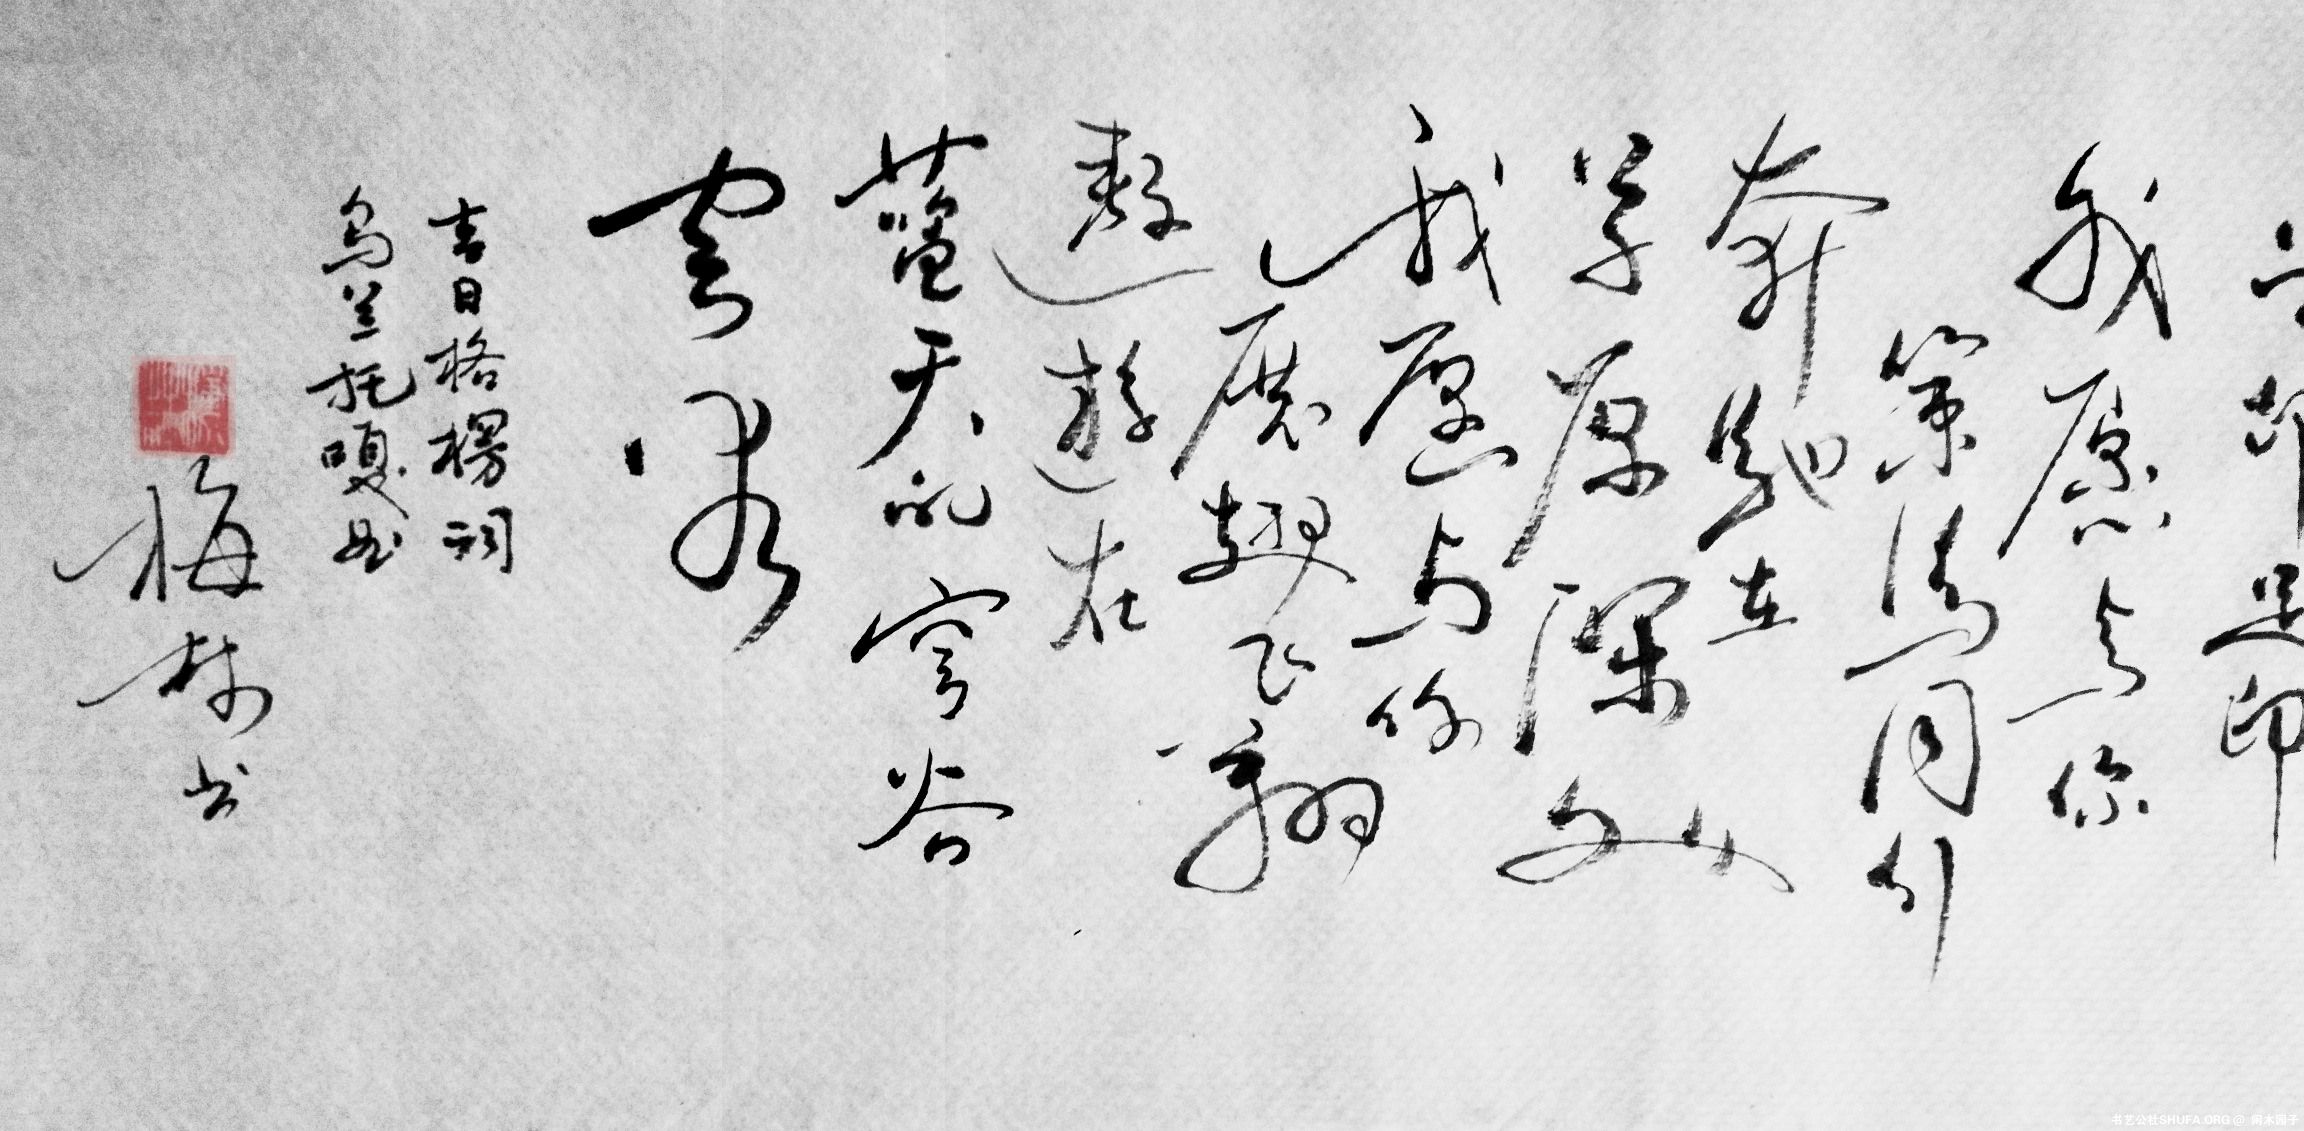 足印
我愿与你
策马同行
奔驰在
草原深处
我愿与你
展翅飞翔
遨游在
蓝天的穹谷
云端
吉日格楞词
乌兰托嘎曲
梅林书
书艺公社SHUFA.ORG@